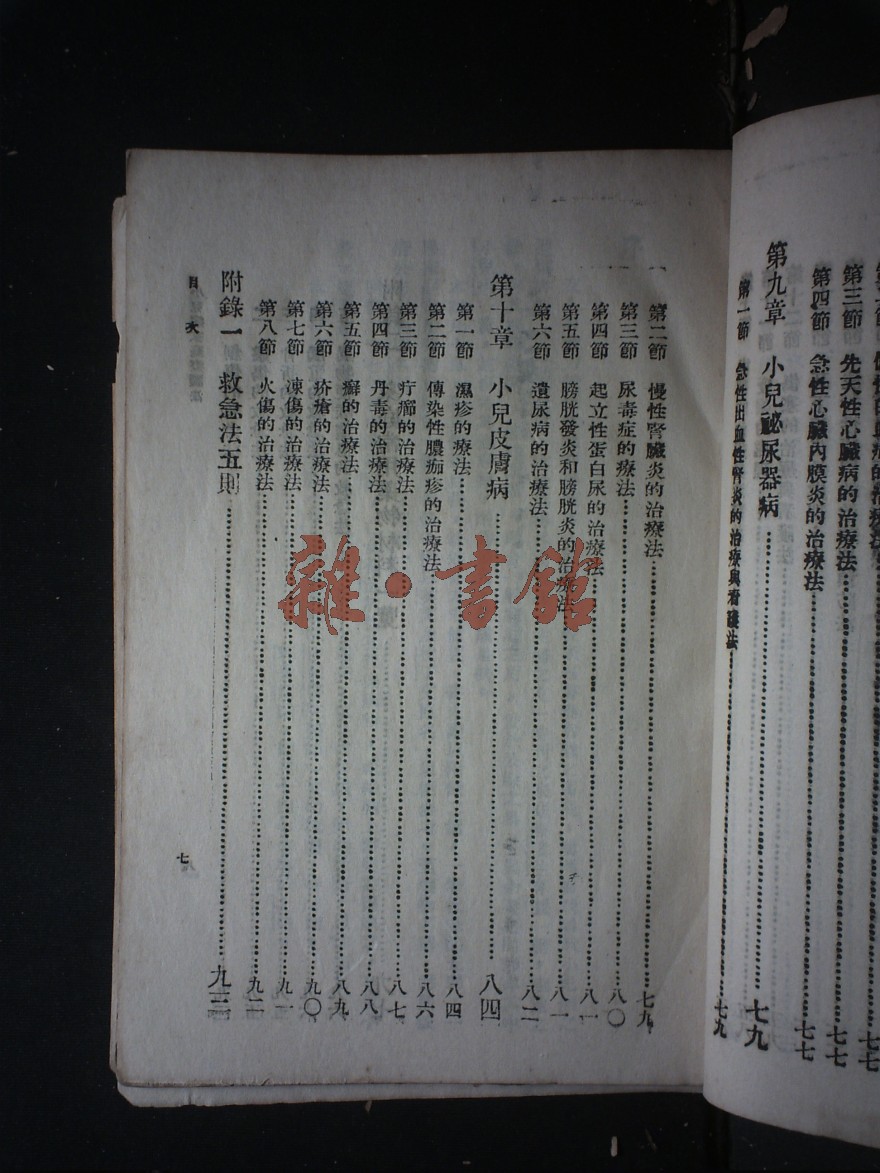 第三節 先天性心臟病的治療法 七七
第四節 急性心臟內膜炎的治療法 七七
第九章 小兒祕尿器病 七九
第一節 急性出血性腎炎的治療與看護法 七九
第二節 慢性腎臟炎的治療法 七九
第三節 尿毒症的療法 八〇
第四節 起立性蛋白尿的治療法 八一
第五節 膀胱發炎和膀胱炎的治療法 八一
第六節 遺尿病的治療法 八二
第十章 小兒皮膚病 八四
第一節 濕疹的療法 八四
第二節 傳染性膿痂疹的治療法 八六
第三節 疔癤的治療法 八七
第四節 丹毒的治療法 八八
第五節 癬的治療法 八九
第六節 疥瘡的治療法 九〇
第七節 凍傷的治療法 九一
第八節 火傷的治療法 九二
附錄一 救急法五則 九三
目次
七
雜·書館